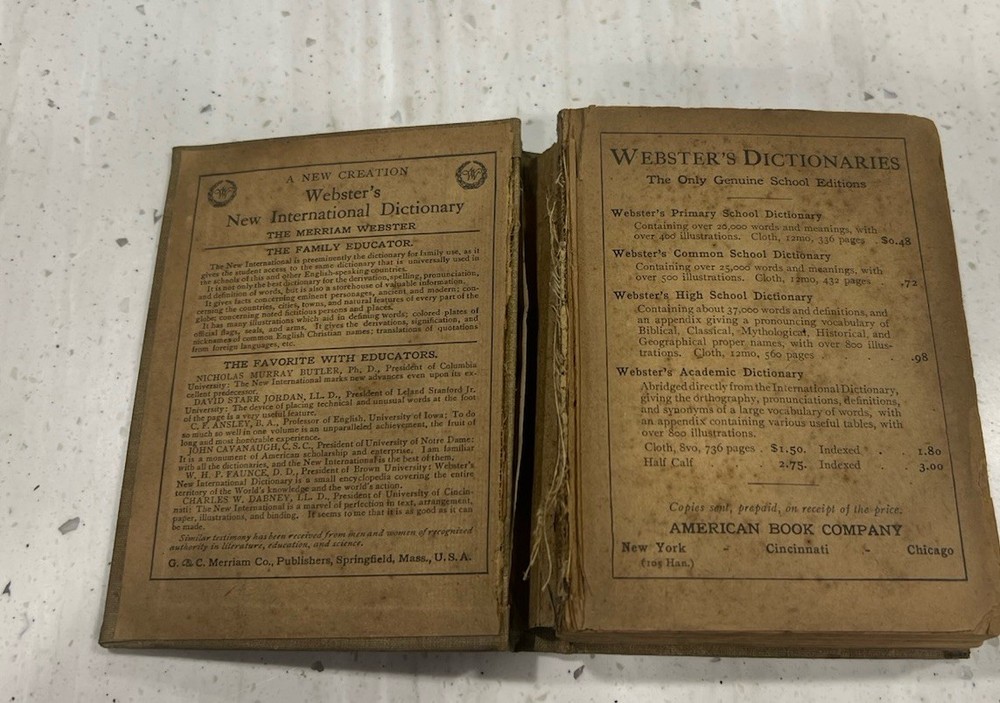 A NEW CREATION
Webster's
New International Dictionary
THE MERRIAM WEBSTER
THE FAMILY EDUCATOR.
The New International is preeminently the dictionary for family use, as it
gives the student access to the same dictionary that is universally used in
the schools of this and other English-speaking countries.
It is not only the best dictionary for the derivation, spelling, pronunciation,
and definition of words, but is also a storehouse of valuable information.
It gives facts concerning eminent personages, ancient and modern; con-
cerning the countries, cities, towns, and natural features of every part of the
globe; concerning noted fictitious persons and places.
It has many illustrations which aid in defining words; colored plates of
official flags, seals, and arms. It gives the derivations, signification, and
nicknames of common English Christian names; translations of quotations
from foreign languages, etc.
THE FAVORITE WITH EDUCATORS.
NICHOLAS MURRAY BUTLER, Ph. D., President of Columbia
University: The New International marks new advances even upon its ex-
cellent predecessor.
DAVID STARR JORDAN, LL. D., President of Leland Stanford Jr.
University: The device of placing technical and unusual words at the foot
of the page is a very useful feature.
C. F. ANSLEY, B. A., Professor of English, University of Iowa: To do
so much so well in one volume is an unparalleled achievement, the fruit of
long and most honorable experience.
JOHN CAVANAUGH, C. S. C., President of University of Notre Dame:
It is a monument of American scholarship and enterprise. I am familiar
with all the dictionaries, and the New International is the best of them.
W. H. P. FAUNCE, D. D., President of Brown University: Webster's
New International Dictionary is a small encyclopedia covering the entire
territory of the World's knowledge and the world's action.
CHARLES W. DABNEY, LL. D., President of University of Cincin-
nati: The New International is a marvel of perfection in text, arrangement,
paper, illustrations, and binding. It seems to me that it is as good as it can
be made.
Similar testimony has been received from men and women of recognized
authority in literature, education, and science.
G. & C. Merriam Co., Publishers, Springfield, Mass., U. S. A.
WEBSTER'S DICTIONARIES
The Only Genuine School Editions
Webster's Primary School Dictionary
Containing over 20,000 words and meanings, with
over 400 illustrations. Cloth, 12mo, 336 pages . $0.48
Webster's Common School Dictionary
Containing over 25,000 words and meanings, with
over 500 illustrations. Cloth, 12mo, 432 pages . .72
Webster's High School Dictionary
Containing about 37,000 words and definitions, and
an appendix giving a pronouncing vocabulary of
Biblical, Classical, Mythological, Historical, and
Geographical proper names, with over 800 illus-
trations. Cloth, 12mo, 560 pages . .98
Webster's Academic Dictionary
Abridged directly from the International Dictionary,
giving the orthography, pronunciations, definitions,
and synonyms of a large vocabulary of words, with
an appendix containing various useful tables, with
over 800 illustrations.
Cloth, 8vo, 736 pages . $1.50. Indexed . 1.80
Half Calf 2.75. Indexed 3.00
Copies sent, prepaid, on receipt of the price.
AMERICAN BOOK COMPANY
New York - Cincinnati - Chicago
(105 Han.)